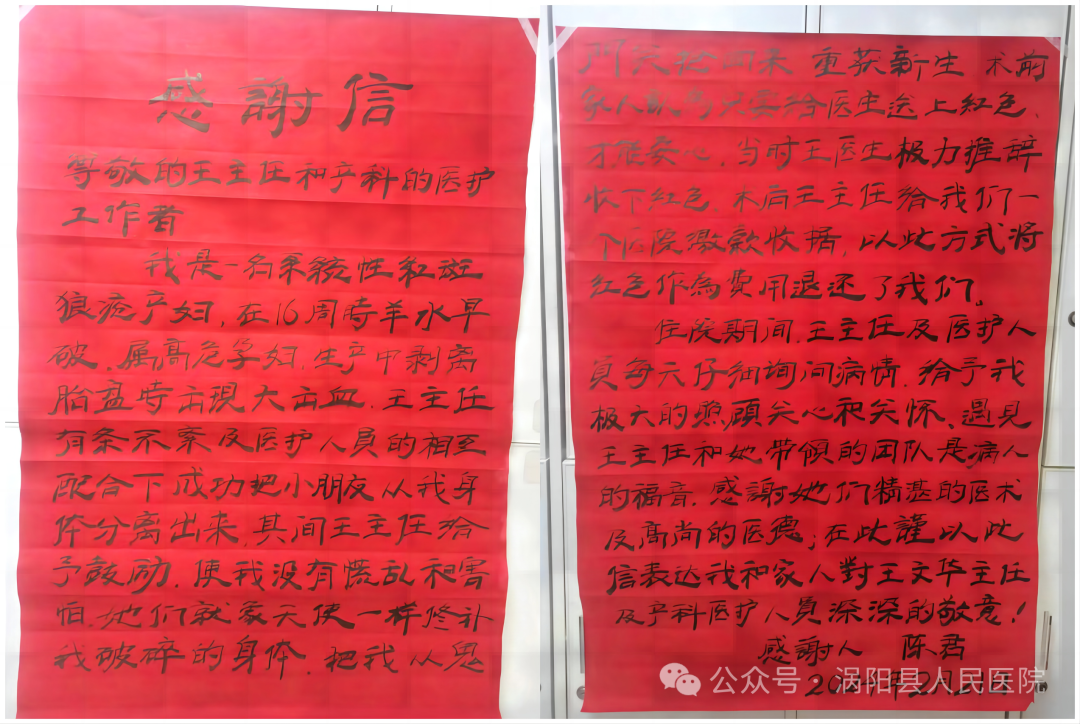 感謝信
尊敬的王主任和产科的医护
工作者
我是一名系统性红斑
狼疮产妇，在16周時羊水早
破，属高危孕妇，生产中剥离
胎盘時出現大出血，王主任
有条不紊及医护人員的相互
配合下成功把小朋友从我身
体分离出来，其间王主任给
予鼓励，使我没有慌乱和害
怕，她们就象天使一样修补
我破碎的身体，把我从鬼
门关抢回来 重获新生 术前
家人认为只要给医生送上红色，
才能安心，当时王医生极力推辞
收下红色，术后王主任给我们一
个医院缴款收据，以此方式将
红色作為費用退还了我们。
住院期间，王主任及医护人
員每天仔细询问病情，给予我
极大的照顧关心和关怀、遇見
王主任和她带領的团队是病人
的福音，感謝她们精湛的医术
及高尚的医德；在此謹以此
信表达我和家人對王文华主任
及产科医护人員深深的敬意！
感謝人 陈君
公众号·涡阳县人民医院